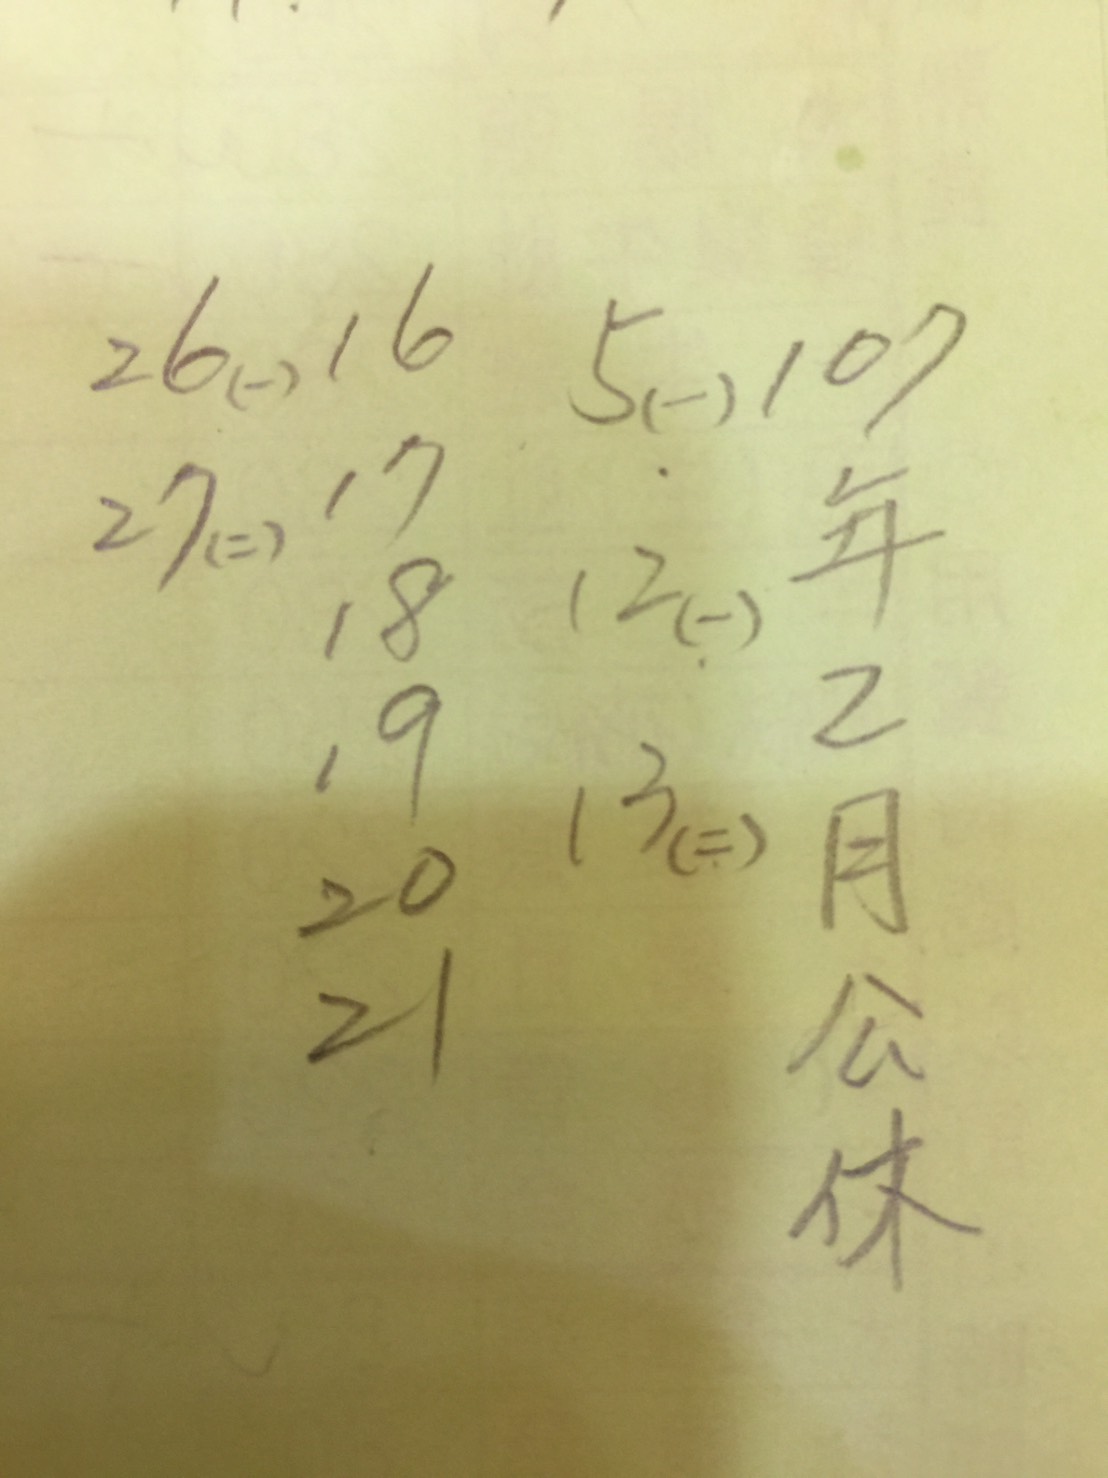 107年2月公休
5(一)
12(一)
13(二)
16
17
18
19
20
21
26(一)
27(二)